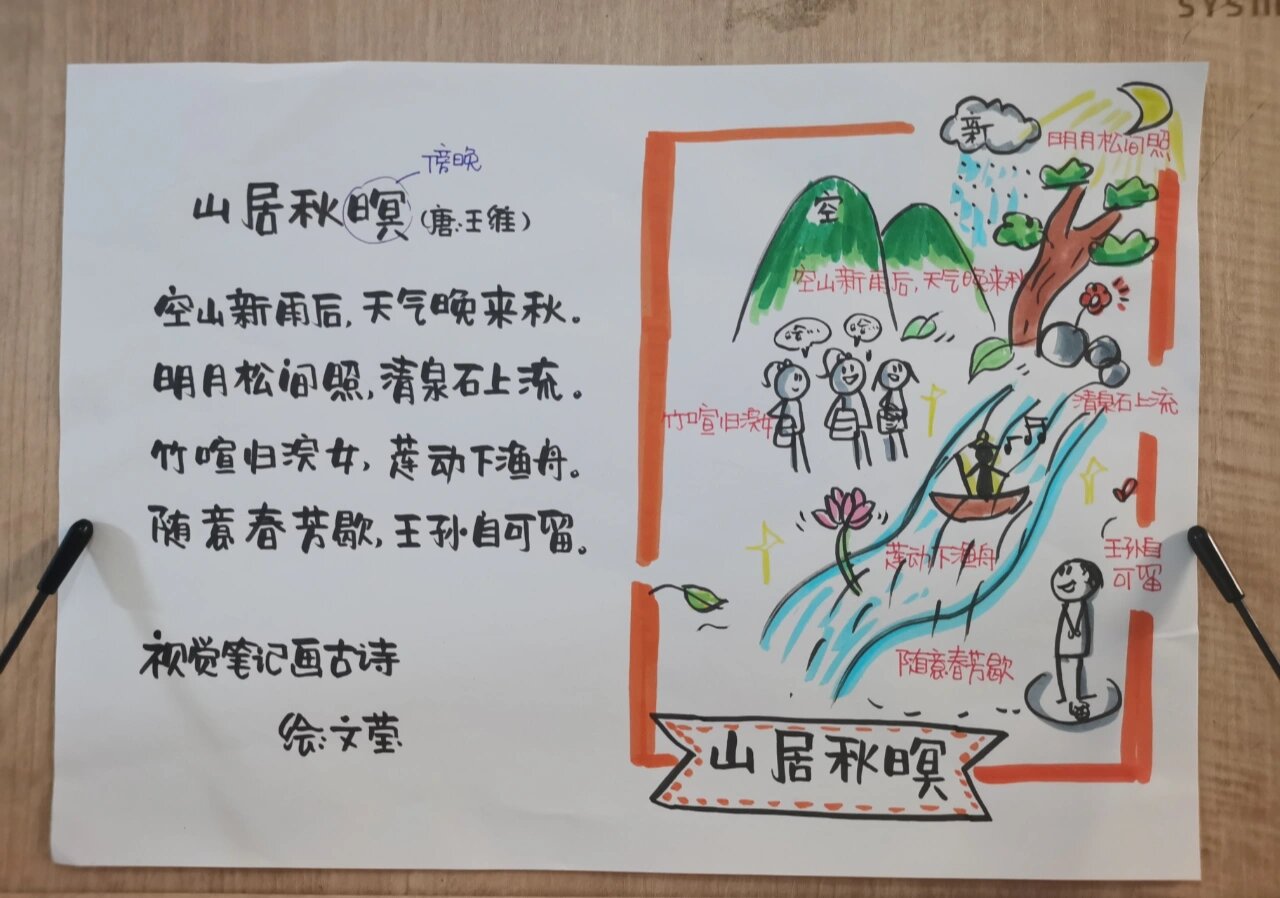 傍晚
山居秋暝(唐:王维)
空山新雨后,天气晚来秋。
明月松间照,清泉石上流。
竹喧归浣女,莲动下渔舟。
随意春芳歇,王孙自可留。
视觉笔记画古诗
绘:文莹
新
明月松间照
空
空山新雨后,天气晚来秋
竹喧归浣女
清泉石上流
莲动下渔舟
王孙自
可留
随意春芳歇
留
山居秋暝